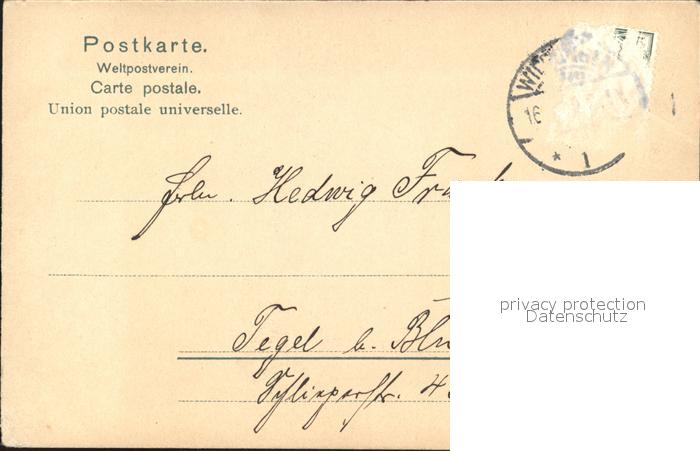 Postkarte.
Weltpostverein.
Carte postale.
Union postale universelle.
16
* 1
Frln. Hedwig
Tegel b.
Schlieperstr. 4
privacy protection
Datenschutz